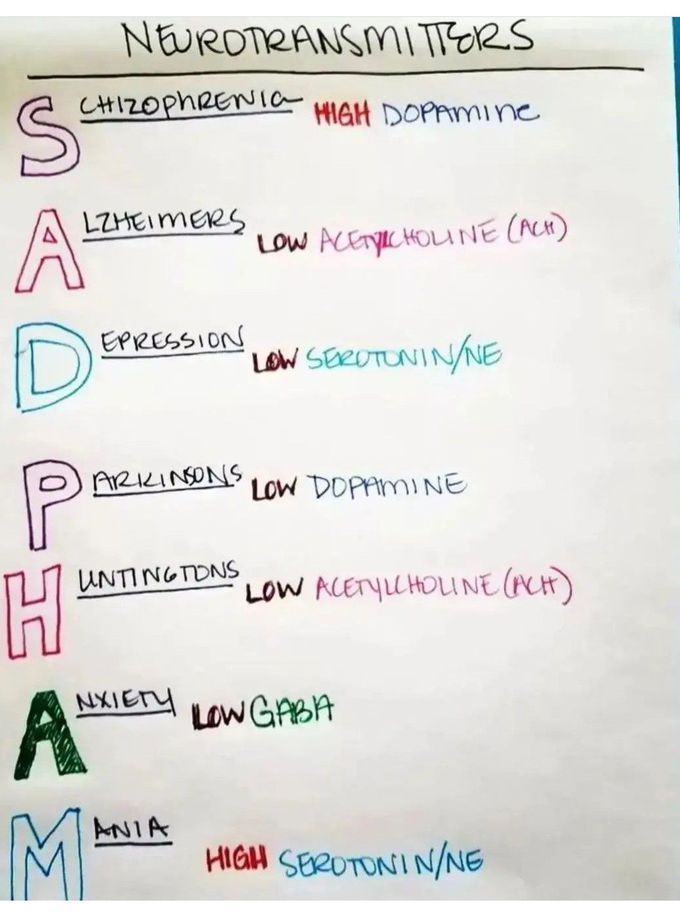 NEUROTRANSMITTERS
SCHIZOPHRENIA HIGH DOPAMINE
ALZHEIMERS LOW ACETYLCHOLINE (ACH)
DEPRESSION LOW SEROTONIN/NE
PARKINSONS LOW DOPAMINE
HUNTINGTONS LOW ACETYLCHOLINE (ACH)
ANXIETY LOW GABA
MANIA HIGH SEROTONIN/NE